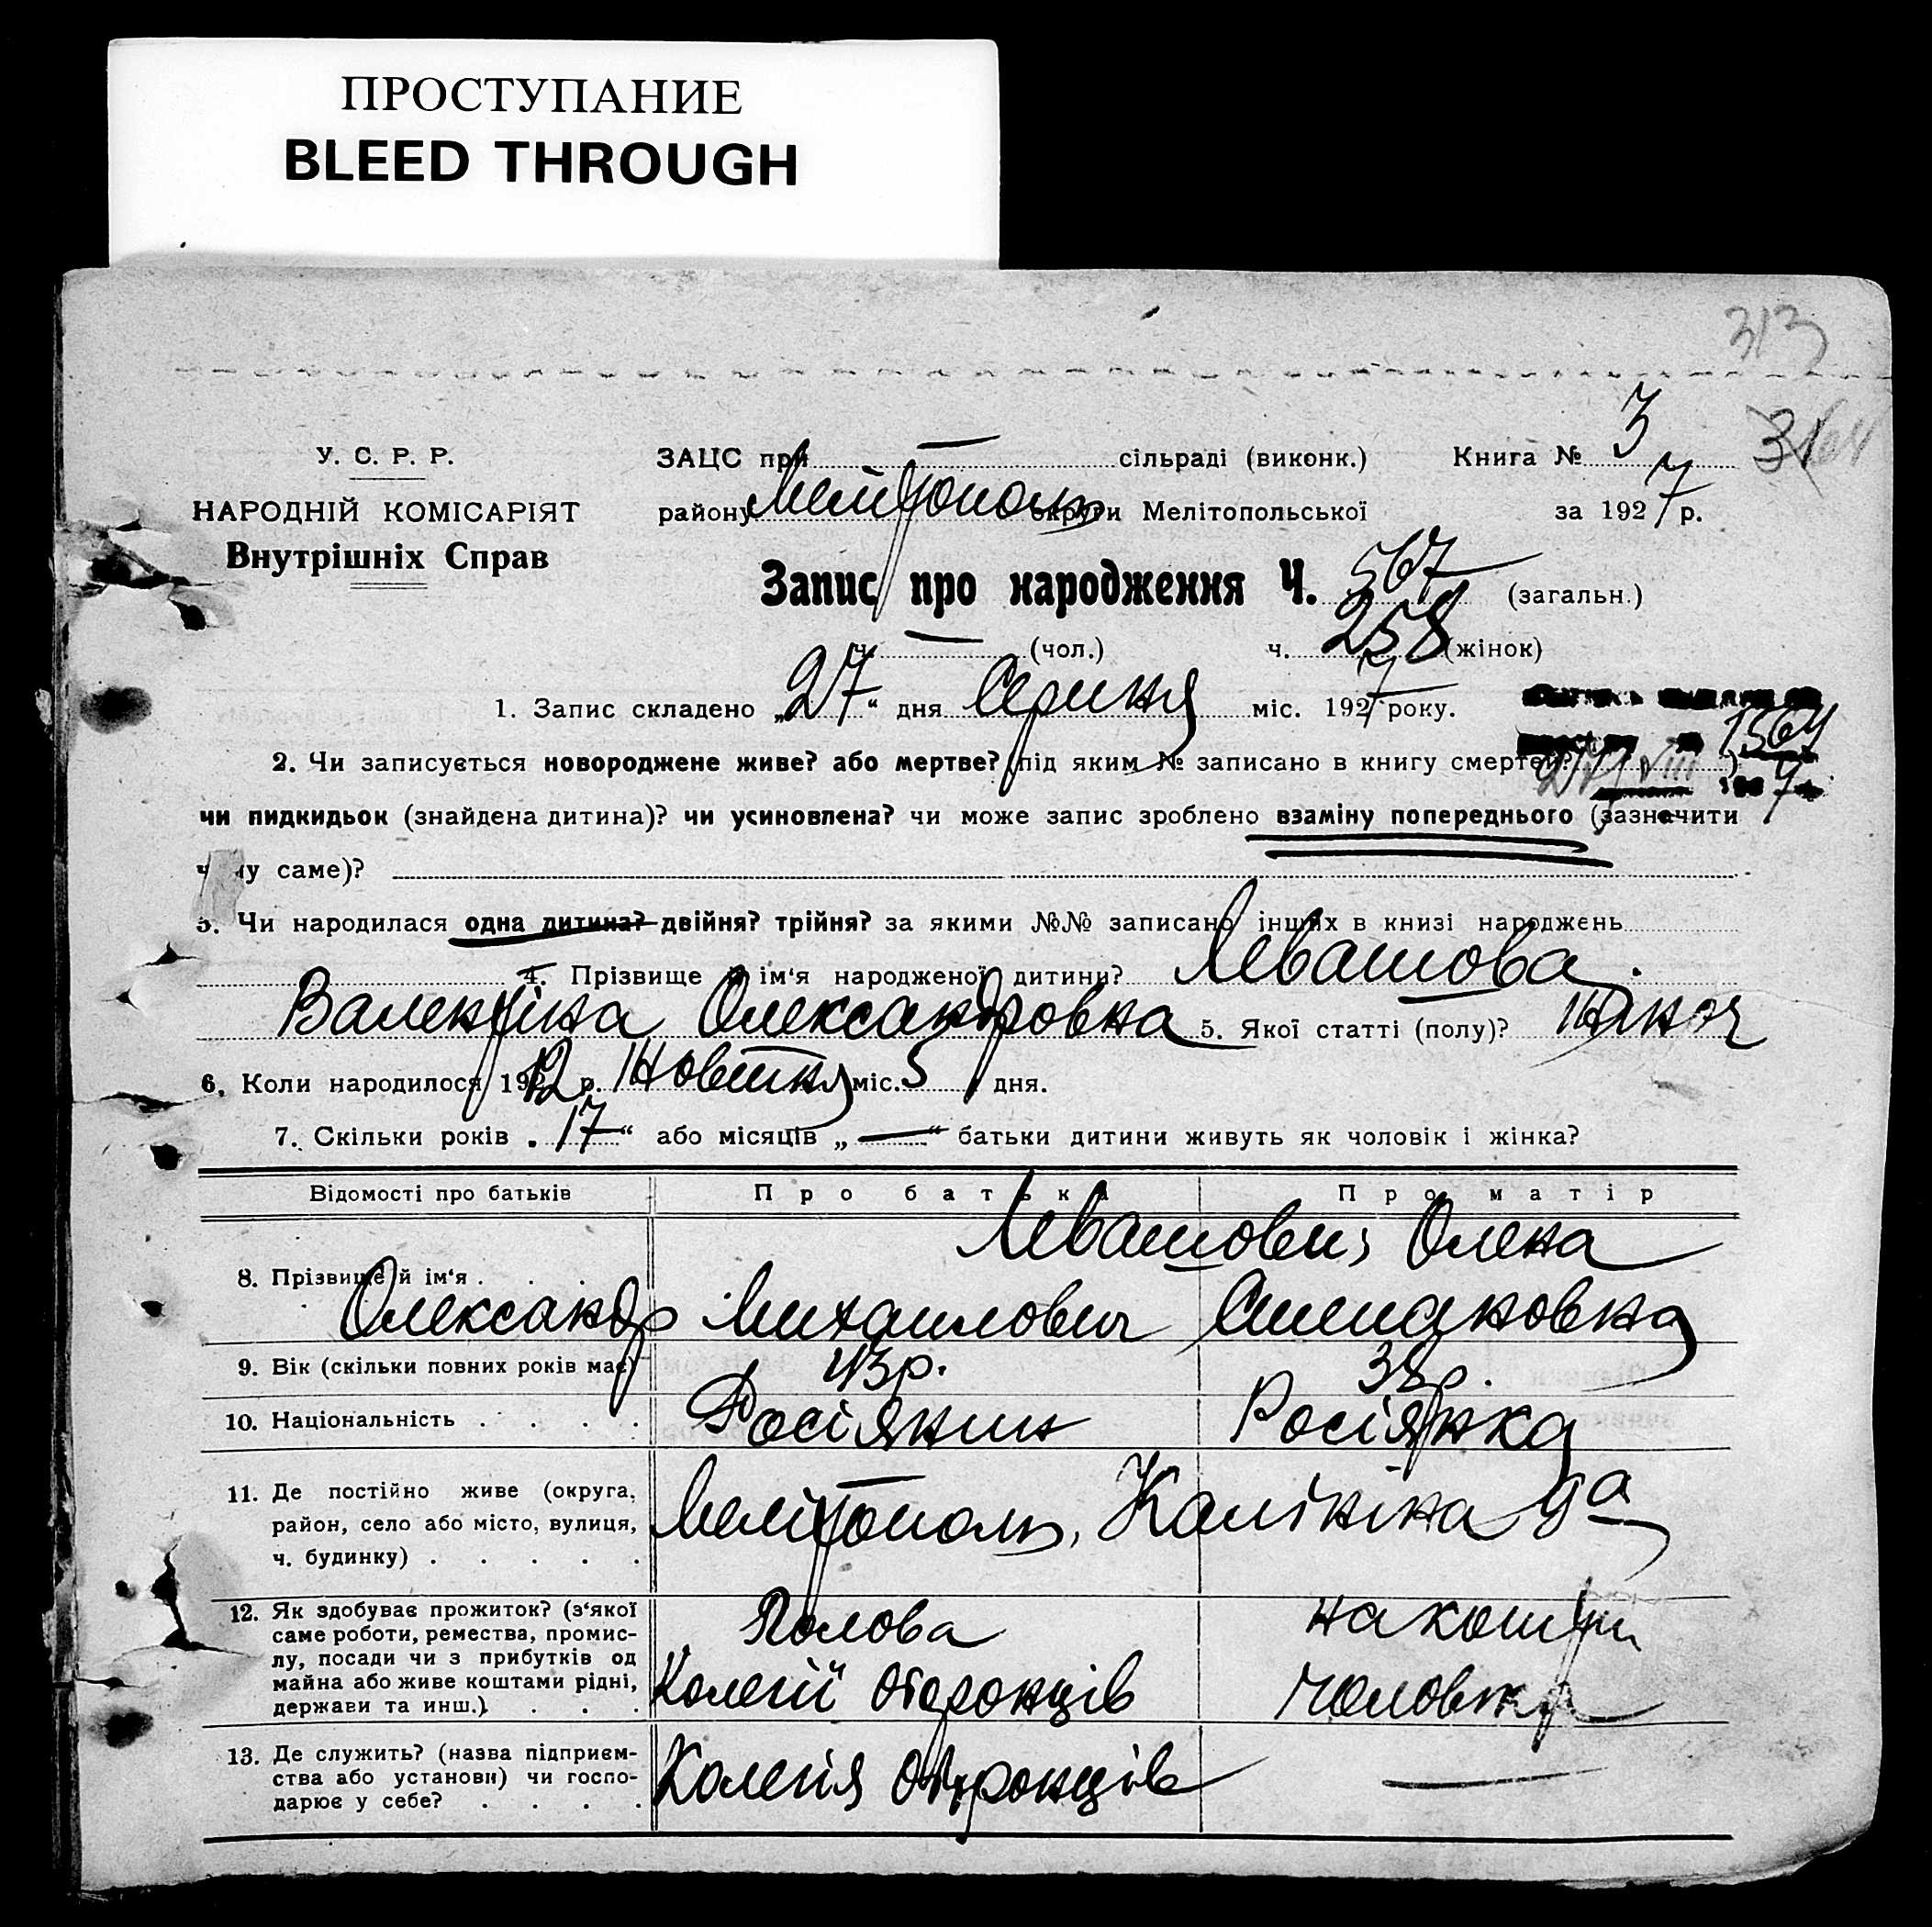 ПРОСТУПАНИЕ
BLEED THROUGH
313
У. С. Р. Р.
НАРОДНІЙ КОМІСАРІЯТ
Внутрішніх Справ
ЗАЦС при — сільраді (виконк.) Книга № 3
району Мелітополь округи Мелітопольської за 1927 р.
Запис про народження Ч. 567 (загальн.)
ч. — (чол.) ч. 258 (жінок)
1. Запис складено „27“ дня Серпня міс. 1927 року.
1564
2. Чи записується новороджене живе? або мертве? (під яким № записано в книгу смертей? )
27 VIII 7
чи пидкидьок (знайдена дитина)? чи усиновлена? чи може запис зроблено взаміну попереднього (зазначити
чому саме)?
3. Чи народилася одна дитина? двійня? трійня? за якими №№ записано інших в книзі народжень
4. Прізвище й ім‘я народженої дитини? Левашова
Валентіна Олександровна 5. Якої статті (полу)? жіноч
6. Коли народилося 1912 р. Жовтня міс. 5 дня.
7. Скільки років „17“ або місяців „—“ батьки дитини живуть як чоловік і жінка?
Відомості про батьків Про батька Про матір
8. Прізвище й ім‘я . . . . Левашови, Олена
Олександр Михаилович
9. Вік (скільки повних років має) 43р. 38р.
10. Національність . . . . Росіянин Росіянка
11. Де постійно живе (округа,
район, село або місто, вулиця,
ч. будинку) . . . . .
Мелітополь, Калініна 9а
12. Як здобуває прожиток? (з‘якої
саме роботи, ремества, промис-
лу, посади чи з прибутків од
майна або живе коштами рідні,
держави та инш.). . . .
Голова
Колегії Оборонців
на кошти
чоловіка
13. Де служить? (назва підприєм-
ства або установи) чи госпо-
дарює у себе? . . . .
Колегія Оборонців —